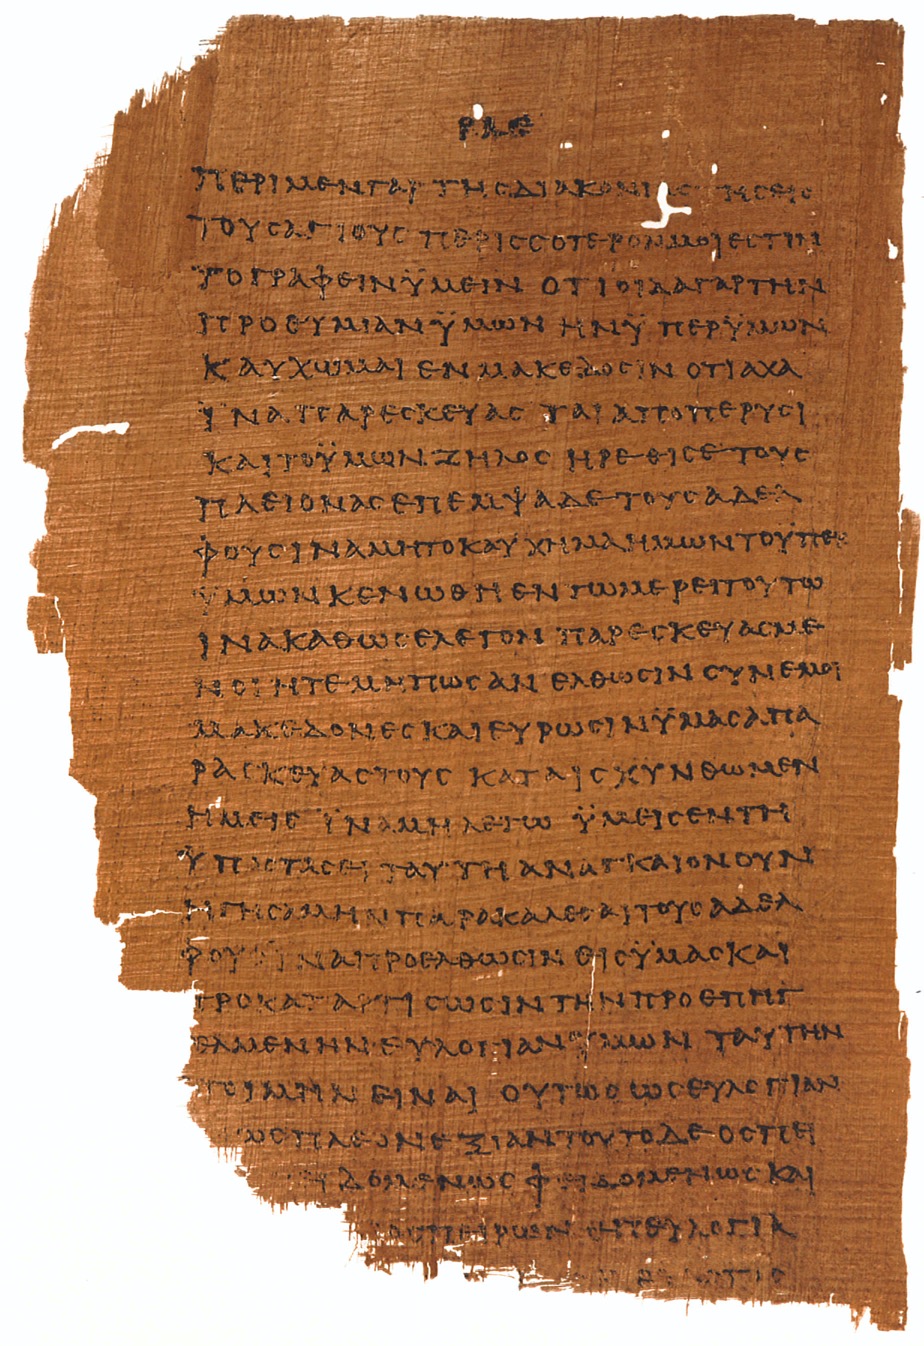 ΡΛΕ
ΠΕΡΙΜΕΝΓΑΡ ΤΗСΔΙΑΚΟΝΙΑС ΤΗСΕΙС
ΤΟΥСΑΓΙΟΥС ΠΕΡΙССΟΤΕΡΟΝΜΟΙΕСΤΙΝ
ΤΟΓΡΑΦΕΙΝΫΜΕΙΝ ΟΤΙΟΙΔΑΓΑΡΤΗΝ
ΠΡΟΘΥΜΙΑΝΫΜΩΝ ΗΝΫ ΠΕΡΫΜΩΝ
ΚΑΥΧΩΜΑΙ ΕΝΜΑΚΕΔΟСΙΝ ΟΤΙΑΧΑ
ΪΝΑΠΑΡΕСΚΕΥΑС ΤΑΙ ΑΠΟΠΕΡΥСΙ
ΚΑΙΤΟΫΜΩΝ ΖΗΛΟС ΗΡΕΘΙСΕΤΟΥС
ΠΛΕΙΟΝΑСΕΠΕΜΨΑΔΕΤΟΥСΑΔΕΛ
ΦΟΥСΙΝΑΜΗΤΟΚΑΥΧΗΜΑΗΜΩΝΤΟΫΠΕΡ
ΫΜΩΝΚΕΝΩΘΗΕΝΤΩΜΕΡΕΙΤΟΥΤΩ
ΙΝΑΚΑΘΩСΕΛΕΓΟΝ ΠΑΡΕСΚΕΥΑСΜΕ
ΝΟΙΗΤΕΜΗΠΩСΑΝ ΕΛΘΩСΙΝ СΥΝΕΜΟΙ
ΜΑΚΕΔΟΝΕСΚΑΙΕΥΡΩСΙΝΫΜΑСΑΠΑ
ΡΑСΚΕΥΑСΤΟΥС ΚΑΤΑΙСΧΥΝΘΩΜΕΝ
ΗΜΕΙС ΪΝΑΜΗΛΕΓΩ ΫΜΕΙСΕΝΤΗ
ΫΠΟСΤΑСΕΙ ΤΑΥΤΗΑΝΑΓΚΑΙΟΝΟΥΝ
ΗΓΗСΑΜΗΝΠΑΡΑΚΑΛΕСΑΙΤΟΥСΑΔΕΛ
ΦΟΥСΪΝΑΠΡΟΕΛΘΩСΙΝ ΕΙСΫΜΑСΚΑΙ
ΠΡΟΚΑΤΑΡΤΙСΩСΙΝΤΗΝΠΡΟΕΠΗΓ
ΕΛΜΕΝΗΝΕΥΛΟΓΙΑΝΫΜΩΝ ΤΑΥΤΗΝ
ΕΤΟΙΜΗΝ ΕΙΝΑΙ ΟΥΤΩСΩСΕΥΛΟΓΙΑΝ
ΩСΠΛΕΟΝΕΞΙΑΝΤΟΥΤΟΔΕΟСΠΕΙ
ΔΟΜΕΝΩС ΦΕΙΔΟΜΕΝΩС ΚΑΙ
ΟСΠΕΙΡΩΝ ΕΠΕΥΛΟΓΙΑ